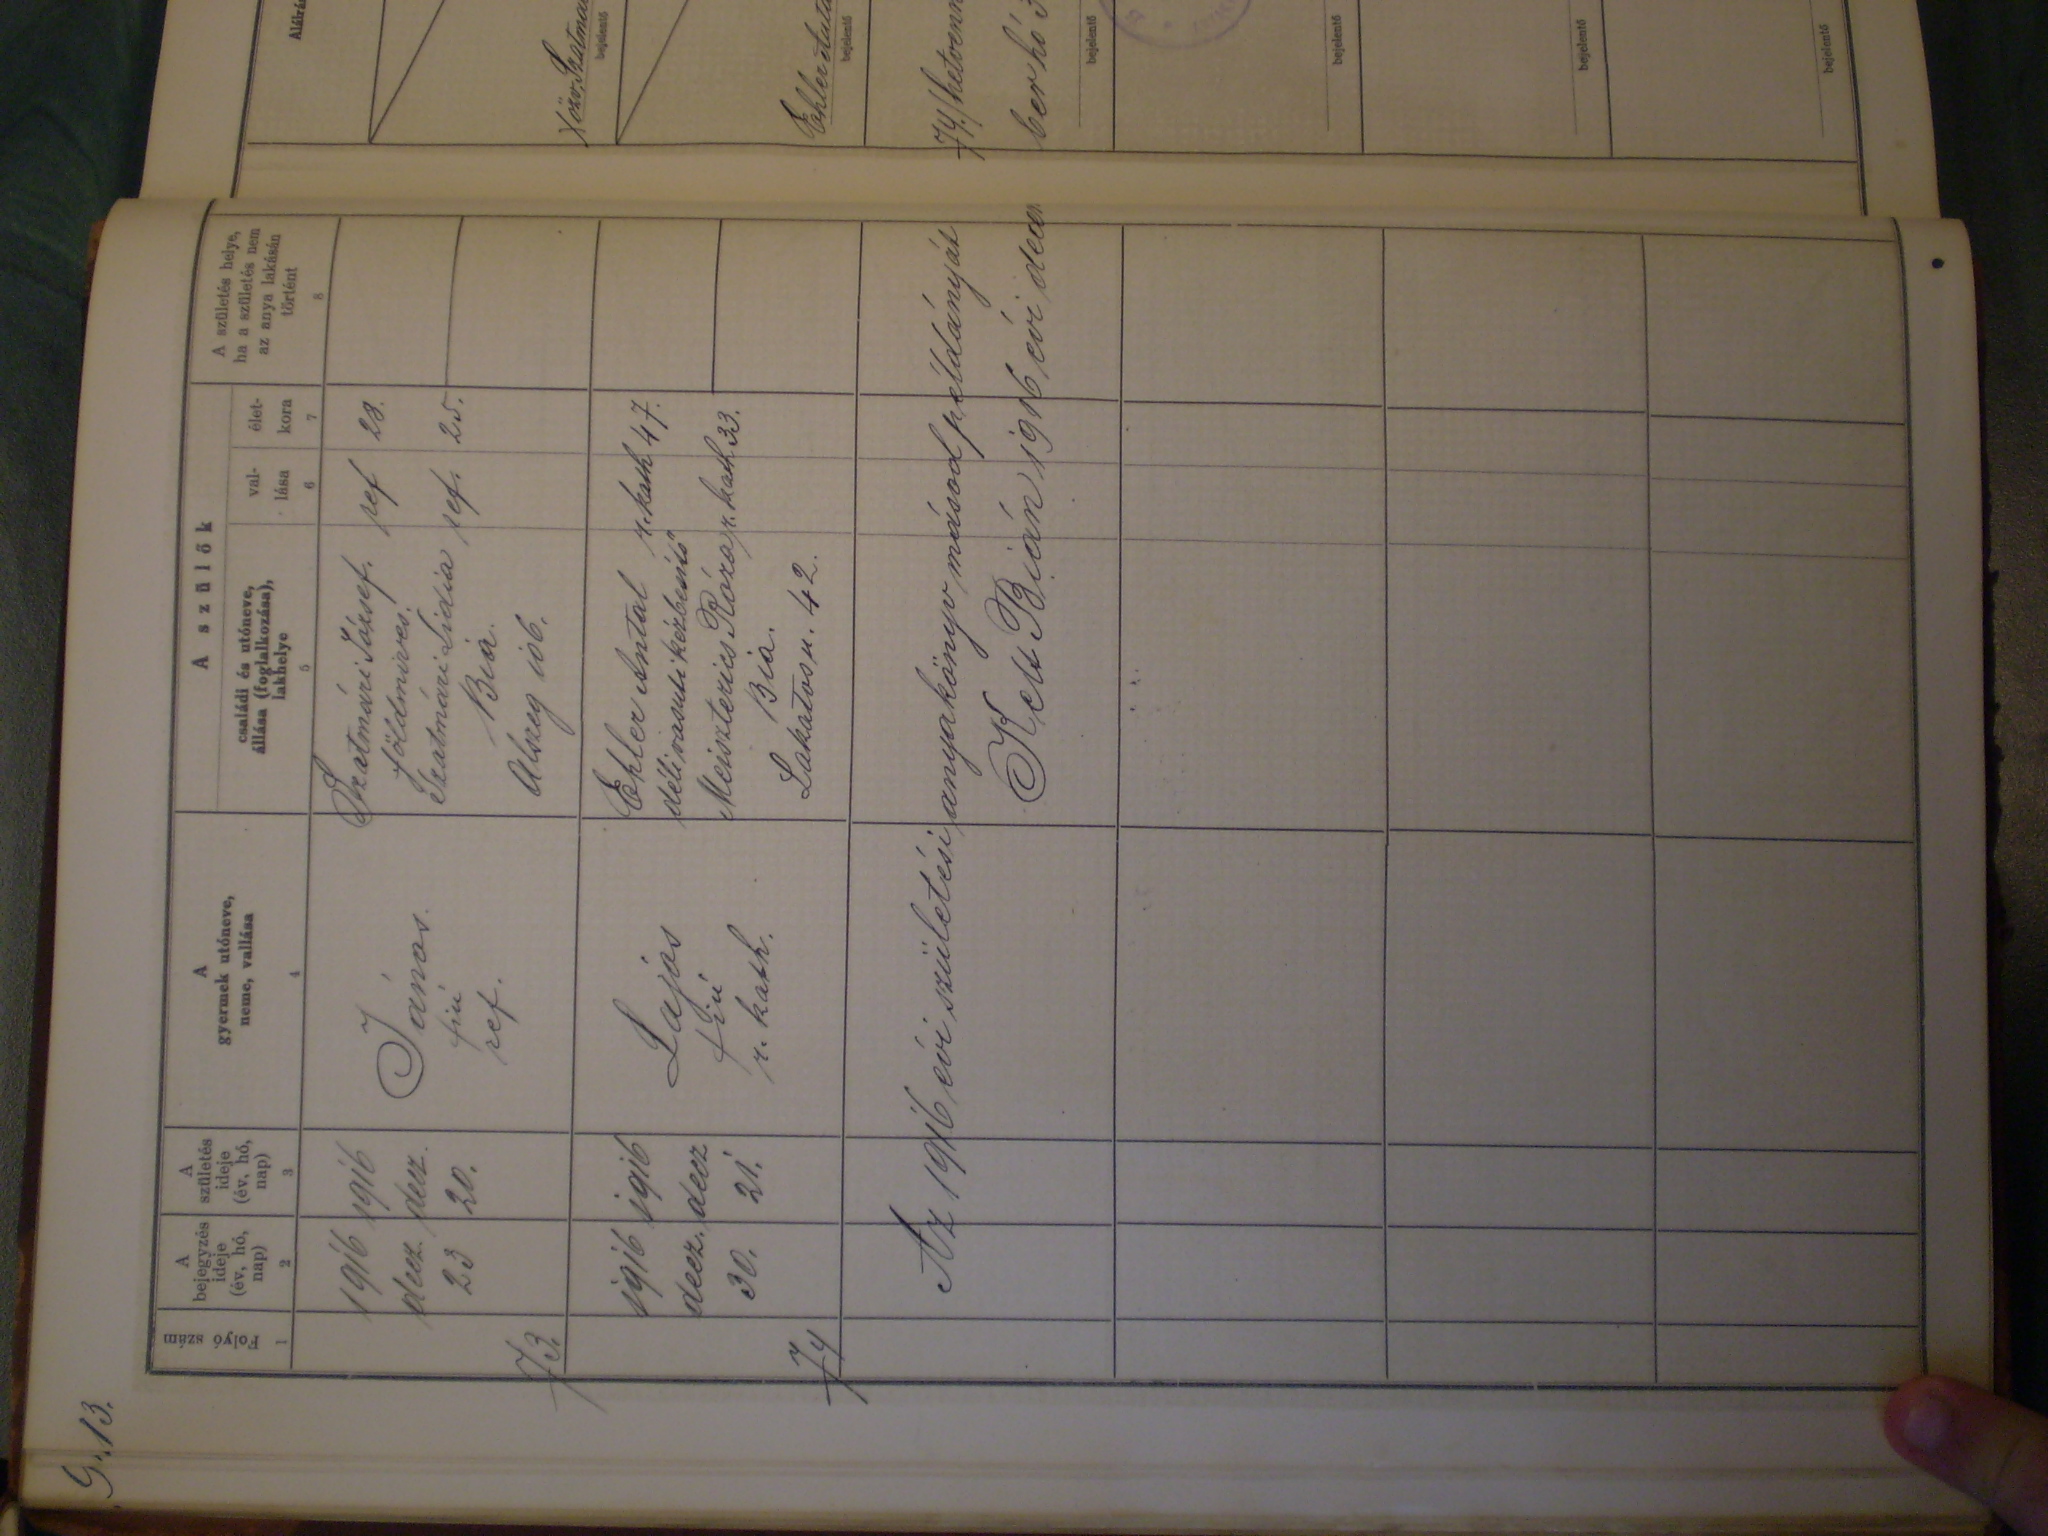 G. 13.
Folyó szám
1
A
bejegyzés
ideje
(év, hó,
nap)
2
A
születés
ideje
(év, hó,
nap)
3
A
gyermek utóneve,
neme, vallása
4
A szülők
családi és utóneve,
állása (foglalkozása),
lakhelye
5
val-
lása
6
élet-
kora
7
A születés helye,
ha a születés nem
az anya lakásán
történt
8
73.
1916
decz.
23
1916
decz.
20.
János.
fiú
ref.
Szatmári József. ref 28.
földmíves.
Szatmári Lidia ref. 25.
Bia.
Alszeg 106.
74
1916
decz.
30.
1916
decz
21.
Lajos
fiú
r. kath.
Ehler Antal r. kath 47.
déli vasuti kézbesítő
Meiszterics Róza r. kath 33.
Bia.
Lakatos u. 42.
Az 1916 évi születési anyakönyv másod példányát
Kelt Bián 1916 évi decem
Aláírás
bejelentő
Ehler
bejelentő
74./hetvenn
ber hó 3
bejelentő
bejelentő
bejelentő
bejelentő